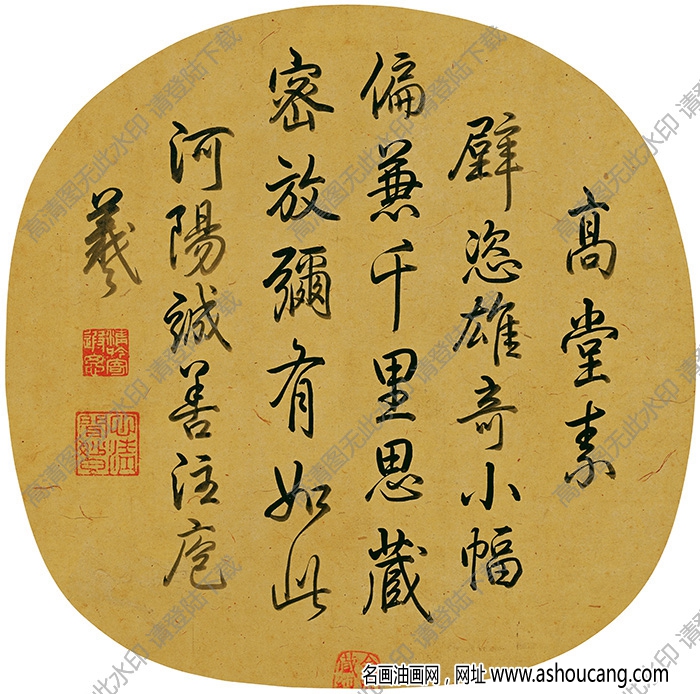 高堂素
壁恣雄奇小幅
偏兼千里思藏
密放彌有如此
河陽誠善注庖
羲
高清图无此水印 请登陆下载
名画油画网，网址 www.ashoucang.com